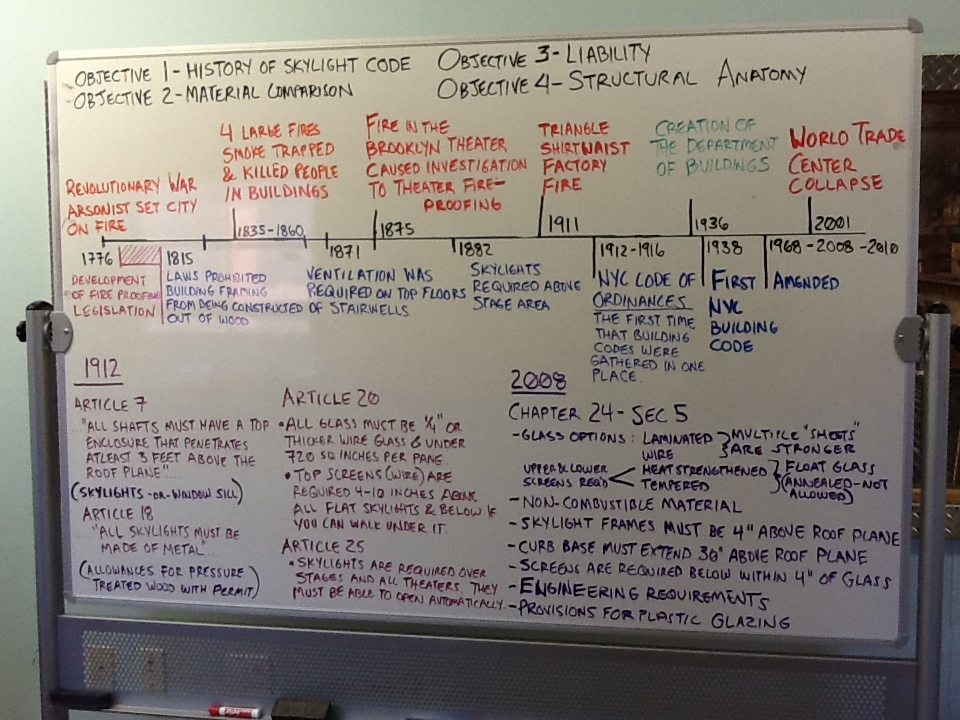 OBJECTIVE 1 - HISTORY OF SKYLIGHT CODE
OBJECTIVE 2 - MATERIAL COMPARISON
OBJECTIVE 3 - LIABILITY
OBJECTIVE 4 - STRUCTURAL ANATOMY
REVOLUTIONARY WAR
ARSONIST SET CITY
ON FIRE
4 LARGE FIRES
SMOKE TRAPPED
& KILLED PEOPLE
IN BUILDINGS
FIRE IN THE
BROOKLYN THEATER
CAUSED INVESTIGATION
TO THEATER FIRE-
PROOFING
TRIANGLE
SHIRTWAIST
FACTORY
FIRE
CREATION OF
THE DEPARTMENT
OF BUILDINGS
WORLD TRADE
CENTER
COLLAPSE
1835-1860
1875
1911
1936
2001
1776
1815
1871
1882
1912-1916
1938
1968-2008-2010
DEVELOPMENT
OF FIRE PROOFING
LEGISLATION
LAWS PROHIBITED
BUILDING FRAMING
FROM BEING CONSTRUCTED
OUT OF WOOD
VENTILATION WAS
REQUIRED ON TOP FLOORS
OF STAIRWELLS
SKYLIGHTS
REQUIRED ABOVE
STAGE AREA
NYC CODE OF
ORDINANCES
THE FIRST TIME
THAT BUILDING
CODES WERE
GATHERED IN ONE
PLACE.
FIRST
NYC
BUILDING
CODE
AMENDED
1912
ARTICLE 7
"ALL SHAFTS MUST HAVE A TOP
ENCLOSURE THAT PENETRATES
ATLEAST 3 FEET ABOVE THE
ROOF PLANE"
(SKYLIGHTS -OR- WINDOW SILL)
ARTICLE 18
"ALL SKYLIGHTS MUST BE
MADE OF METAL"
(ALLOWANCES FOR PRESSURE
TREATED WOOD WITH PERMIT)
ARTICLE 20
• ALL GLASS MUST BE ¼" OR
THICKER WIRE GLASS & UNDER
720 SQ INCHES PER PANE
• TOP SCREENS (WIRE) ARE
REQUIRED 4-10 INCHES ABOVE
ALL FLAT SKYLIGHTS & BELOW IF
YOU CAN WALK UNDER IT.
ARTICLE 25
• SKYLIGHTS ARE REQUIRED OVER
STAGES AND ALL THEATERS. THEY
MUST BE ABLE TO OPEN AUTOMATICALLY.
2008
CHAPTER 24 - SEC 5
- GLASS OPTIONS: LAMINATED } MULTIPLE "SHEETS"
WIRE } ARE STRONGER
UPPER & LOWER < HEAT STRENGTHENED } FLOAT GLASS
SCREENS REQ'D TEMPERED (ANNEALED - NOT
ALLOWED)
- NON-COMBUSTIBLE MATERIAL
- SKYLIGHT FRAMES MUST BE 4" ABOVE ROOF PLANE
- CURB BASE MUST EXTEND 30" ABOVE ROOF PLANE
- SCREENS ARE REQUIRED BELOW WITHIN 4" OF GLASS
- ENGINEERING REQUIREMENTS
- PROVISIONS FOR PLASTIC GLAZING